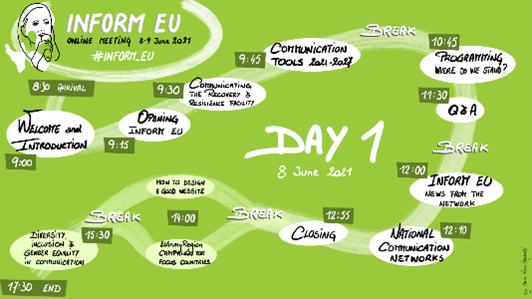 INFORM EU
ONLINE MEETING 8-9 June 2021
#INFORM_EU
8:30 ARRIVAL
WELCOME and
INTRODUCTION
9:00
9:15
OPENING
INFORM EU
9:30
COMMUNICATING
THE RECOVERY &
RESILIENCE FACILITY
9:45
COMMUNICATION
TOOLS 2021-2027
BREAK
10:45
PROGRAMMING
WHERE DO WE STAND?
11:30
Q&A
BREAK
12:00
INFORM EU
NEWS FROM THE
NETWORK
12:10
NATIONAL
COMMUNICATION
NETWORKS
12:55
CLOSING
BREAK
14:00
HOW TO DESIGN
A GOOD WEBSITE
EUinmyRegion
CAMPAIGN FOR
FOCUS COUNTRIES
BREAK
15:30
DIVERSITY,
INCLUSION &
GENDER EQUALITY
IN COMMUNICATION
17:30 END
DAY 1
8 June 2021